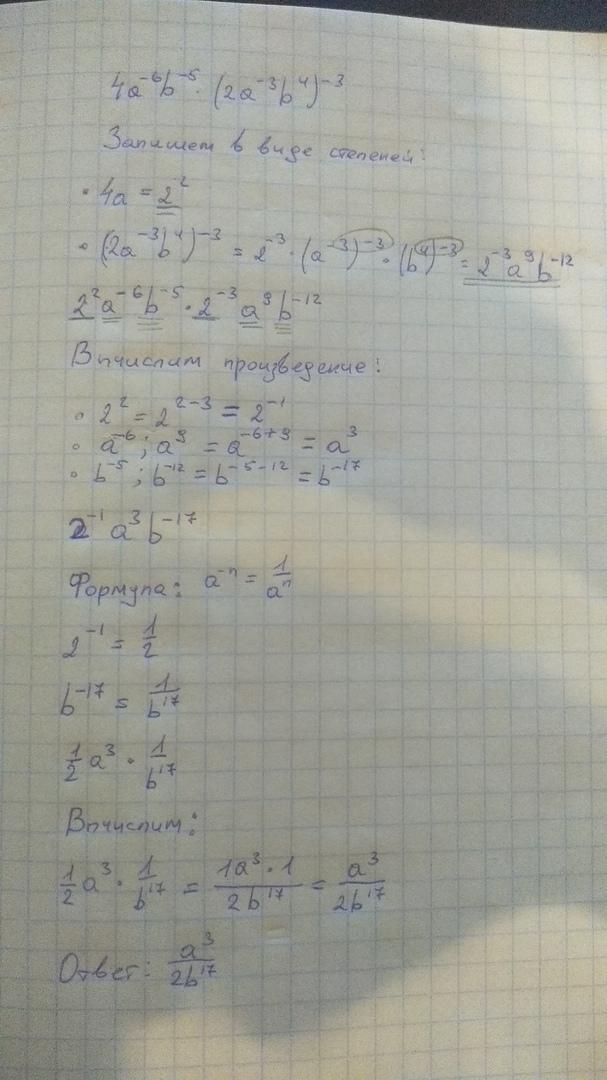 4a⁻⁶b⁻⁵ · (2a⁻³b⁴)⁻³
Запишем в виде степеней:
• 4a = 2²
• (2a⁻³b⁴)⁻³ = 2⁻³ · (a⁻³)⁻³ · (b⁴)⁻³ = 2⁻³a⁹b⁻¹²
2²a⁻⁶b⁻⁵ · 2⁻³a⁹b⁻¹²
Вычислим произведение:
• 2² = 2²⁻³ = 2⁻¹
• a⁻⁶; a⁹ = a⁻⁶⁺⁹ = a³
• b⁻⁵; b⁻¹² = b⁻⁵⁻¹² = b⁻¹⁷
2⁻¹a³b⁻¹⁷
Формула: a⁻ⁿ = 1/aⁿ
2⁻¹ = 1/2
b⁻¹⁷ = 1/b¹⁷
1/2 a³ · 1/b¹⁷
Вычислим:
1/2 a³ · 1/b¹⁷ = 1a³·1/2b¹⁷ = a³/2b¹⁷
Ответ: a³/2b¹⁷